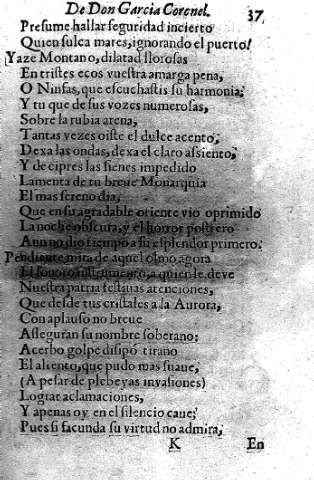 De Don Garcia Coronel. 37
Presume hallar seguridad incierto
Quien sulca mares, ignorando el puerto!
Yaze Montano, dilatad llorosas
En tristes ecos vuestra amarga pena,
O Ninfas, que escuchastis su harmonia;
Y tu que de sus vozes numerosas,
Sobre la rubia arena,
Tantas vezes oiste el dulce acento;
Dexa las ondas, dexa el claro assiento,
Y de cipres las sienes impedido
Lamenta de tu breue Monarquia
El mas sereno dia,
Que en su agradable oriente vio oprimido
La noche obscura, y el horror postrero
Aun no dio tiempo a su esplendor primero.
Pendiente mira de aquel olmo agora
El sonoro instrumento, a quien le deve
Nuestra patria festiuas atenciones,
Que desde tus cristales a la Aurora,
Con aplauso no breue
Asseguran su nombre soberano;
Acerbo golpe disipó tirano
El aliento, que pudo mas suaue,
(A pesar de plebeyas invasiones)
Lograr aclamaciones,
Y apenas oy en el silencio caue;
Pues si facunda su virtud no admira,
K En